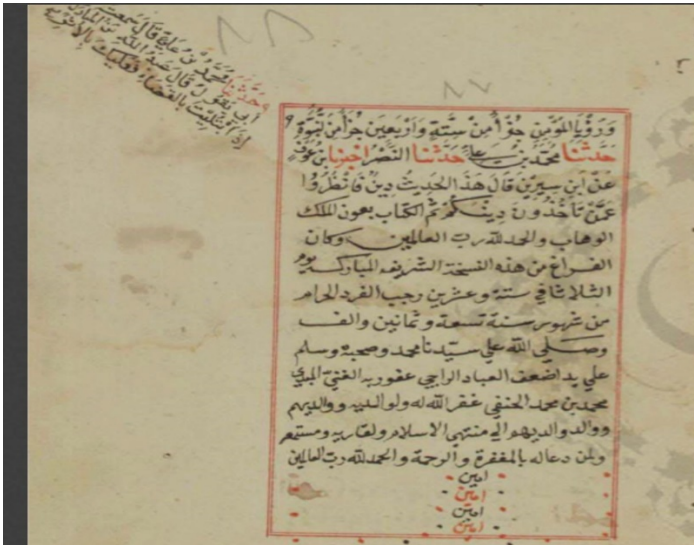 وحدثنا محمد بن علي قال سمعت
أبي يقول قال عبد الله بن المبارك
إذا ابتليت بالقضاء فعليك بالأثر
٨٧
ورؤيا المؤمن جزأ من ستة واربعين جزأ من النبوة
حدثنا محمد بن علي حدثنا النضر اخبرنا بن عون
عن ابن سيرين قال هذا الحديث دين فانظروا
عمن تأخذون دينكم تم الكتاب بعون الملك
الوهاب والحمد لله رب العالمين وكان
الفراغ من هذه النسخة الشريفه المباركة يوم
الثلاثا في ستة وعشرين رجب الفرد الحرام
من شهور سنة تسعة وثمانين والف
وصلي الله علي سيدنا محمد وصحبه وسلم
علي يد اضعف العباد الراجي عفو ربه الغني
محمد بن محمد الحنفي غفر الله له ولوالديه ووالديهم
ووالد والديهم الي منتهي الاسلام ولقاريه ومستمعه
ولمن دعا له بالمغفرة والرحمة والحمد لله رب العالمين
امين
امين
امين
امين